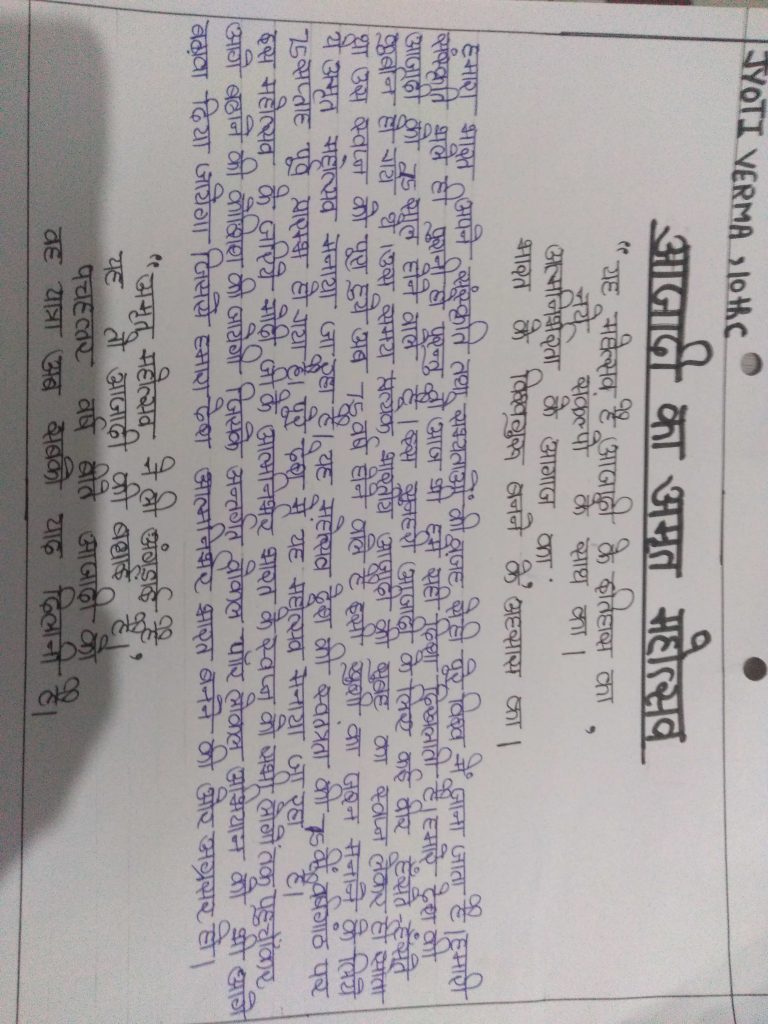 JYOTI VERMA, 10th C
आजादी का अमृत महोत्सव
“यह महोत्सव है आजादी के इतिहास का,
नये संकल्पो के साथ का।
आत्मनिर्भरता के आगाज का,
भारत के विश्वगुरु बनने के अहसास का।
हमारा भारत अपने संस्कृति तथा सभ्यताओं की वजह से ही पूरे विश्व में जाना जाता है। हमारी
संस्कृति भले ही पुरानी हो परन्तु वो आज भी हमे सही दिशा दिखलाती है। हमारे देश को
आजादी को 75 साल होने वाले है। इस सुनहरी आजादी के लिए कई वीर हंसते-हंसते
कुर्बान हो गए थे। उस समय प्रत्येक भारतीय आजादी की सुबह का स्वप्न लेकर ही सोता
था उस स्वप्न को पूरा हुये अब 75 वर्ष होने वाले है इसी खुशी का जश्न मनाने के लिये
ये अमृत महोत्सव मनाया जा रहा है। यह महोत्सव देश की स्वतंत्रता की 75 वीं वर्षगांठ पर
75 सप्ताह पूर्व प्रारम्भ हो गया है। पूरे देश में यह महोत्सव मनाया जा रहा है।
इस महोत्सव के जरिये मोदी जी के आत्मनिर्भर भारत के स्वप्न को सभी लोगों तक पहुचाँकर
आगे बढाने की कोशिश की जायेगी जिसके अन्तर्गत वोकल फॉर लोकल अभियान को भी आगे
बढ़ावा दिया जायेगा जिससे हमारा देश आत्मनिर्भर भारत बनने की ओर अग्रसर हो।
“अमृत महोत्सव ने ली अंगड़ाई है,
यह तो आजादी की बधाई है।
पचहत्तर वर्ष बीते आजादी को
वह यात्रा अब सबको याद दिलानी है।